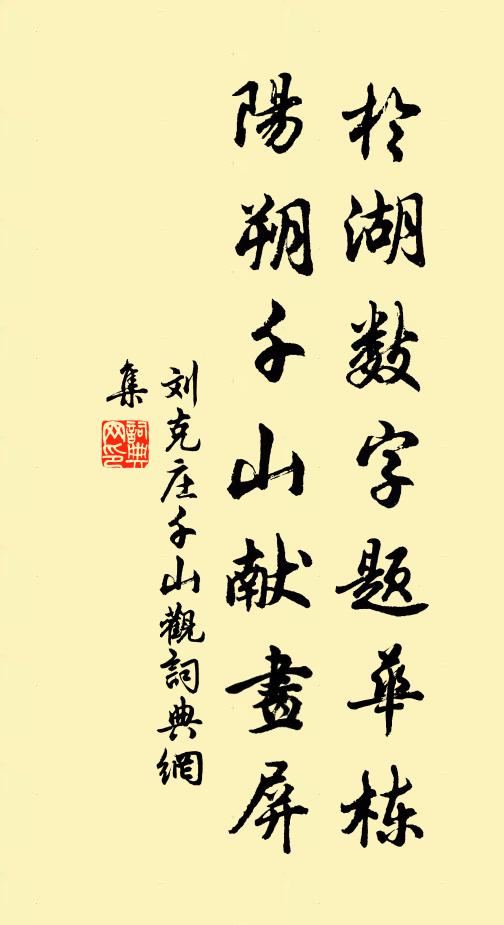 於湖数字题華栋
陽朔千山献畫屏
刘克庄千山觀詞典網
集
詞典网印